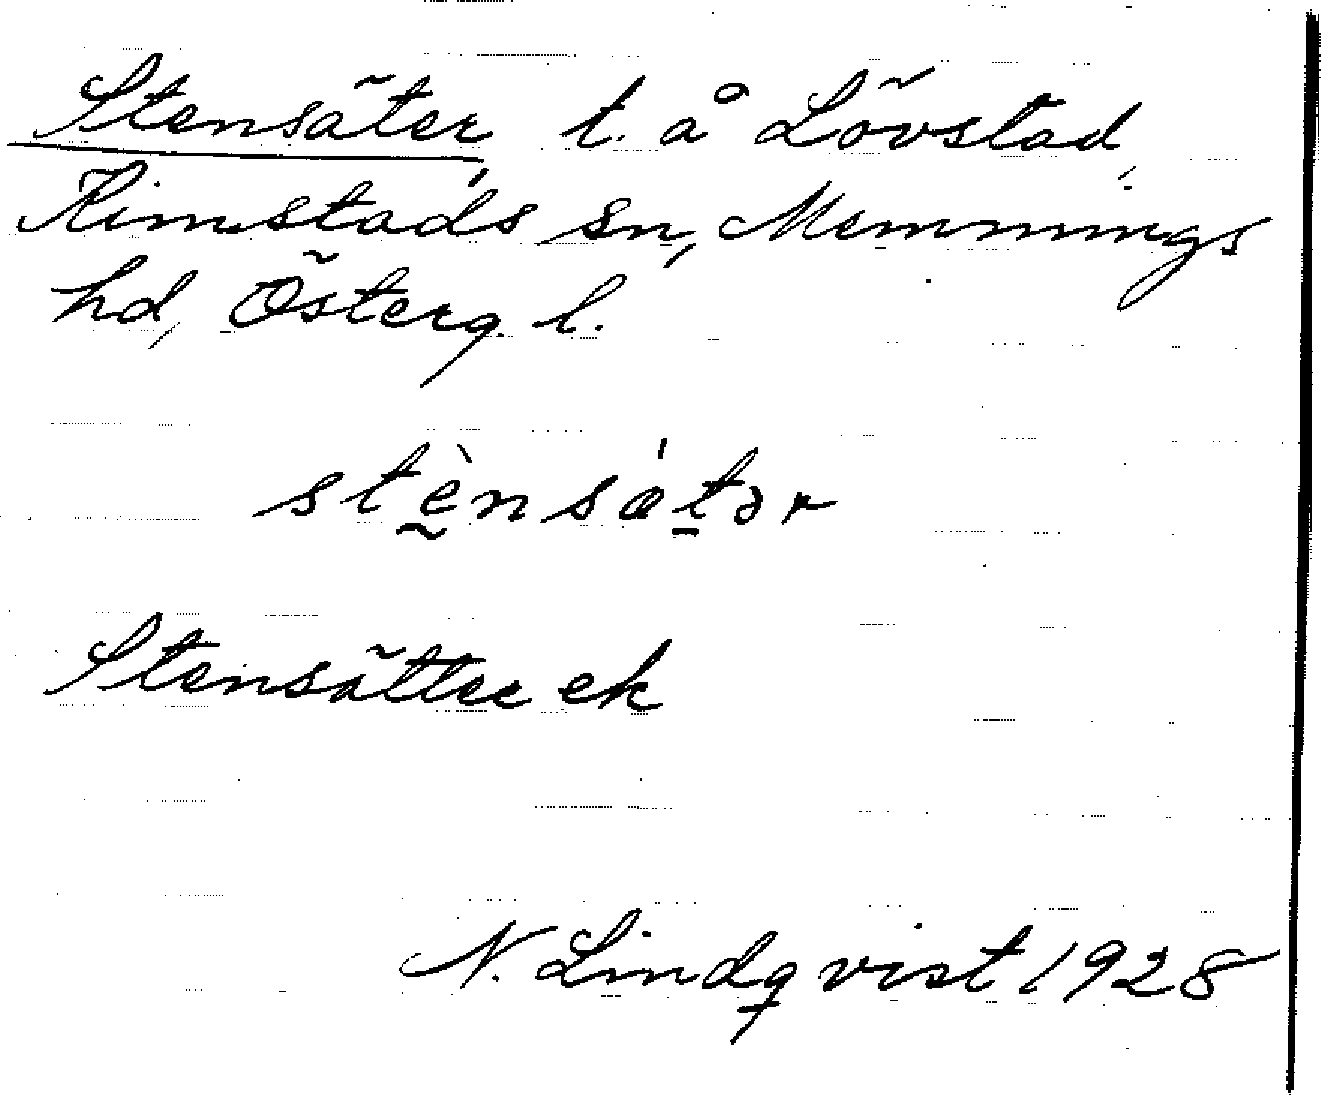 Stensäter, t. å Lövstad,
Kimstads sn, Memmings
hd, Österg. l.
stènsátər
Stensätter ek
N. Lindqvist 1928